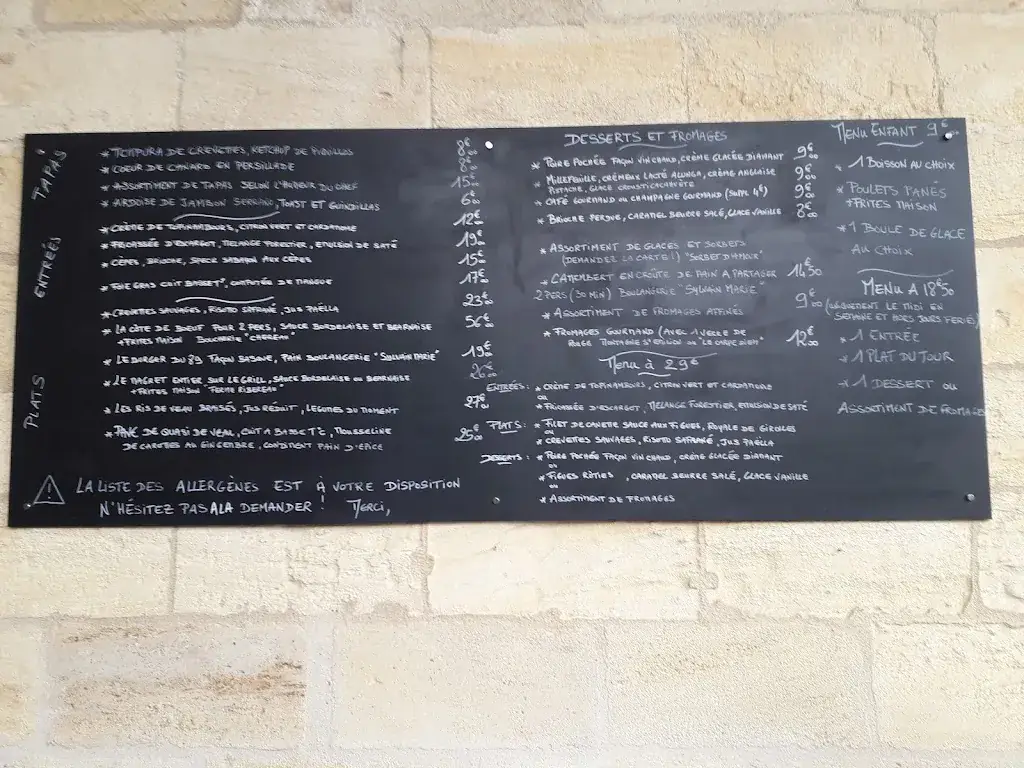 TAPAS
* TEMPURA DE CREVETTES, KETCHUP DE PIQUILLOS 8€00
* COEUR DE CANARD EN PERSILLADE 8€00
* ASSORTIMENT DE TAPAS SELON L'HUMEUR DU CHEF 15€00
* ARDOISE DE JAMBON SERRANO, TOAST ET GUINDILLAS 6€00
ENTRÉES
* CRÈME DE TOPINAMBOURS, CITRON VERT ET CARDAMOME 12€00
* FRICASSÉE D'ESCARGOT, MELANGE FORESTIER, EMULSION DE SATÉ 19€00
* CÈPES, BRIOCHE, SPECK SABAYON AUX CÈPES 15€00
* FOIE GRAS CUIT BASSE T°, COMPOTÉE DE MANGUE 17€00
PLATS
* CREVETTES SAUVAGES, RISOTO SAFRANÉ, JUS PAËLLA 23€00
* LA CÔTE DE BOEUF POUR 2 PERS, SAUCE BORDELAISE ET BEARNAISE 56€00
+ FRITES MAISON BOUCHERIE
* LE BURGAR DU 89 FAÇON BASQUE, PAIN BOULANGERIE "SYLVAIN MARIE" 19€00
* LE MAGRET ENTIER SUR LE GRILL, SAUCE BORDELAISE OU BEARNAISE 26€00
+ FRITES MAISON "FERME RIBEREAU"
* LES RIS DE VEAU BRAISÉS, JUS RÉDUIT, LEGUMES DU MOMENT 27€00
* PAVÉ DE QUASI DE VEAU, CUIT A BASSE T°C, MOUSSELINE 25€00
DE CAROTTES AU GINGEMBRE, CONDIMENT PAIN D'ÉPICE
LA LISTE DES ALLERGÈNES EST À VOTRE DISPOSITION
N'HÉSITEZ PAS A LA DEMANDER ! MERCI,
DESSERTS ET FROMAGES
* POIRE POCHÉE FAÇON VIN CHAUD, CRÈME GLACÉE DIAMANT 9€00
* MILLEFEUILLE, CRÉMEUX LACTÉ ALUNGA, CRÈME ANGLAISE 9€00
PISTACHE, GLACE CROUSTICACAHUÈTE
* CAFÉ GOURMAND OU CHAMPAGNE GOURMAND (SUPPL 4€) 9€00
* BRIOCHE PERDUE, CARAMEL BEURRE SALÉ, GLACE VANILLE 8€00
* ASSORTIMENT DE GLACES ET SORBETS
(DEMANDEZ LA CARTE !) "SORBET D'AMOUR"
* CAMEMBERT EN CROÛTE DE PAIN A PARTAGER 14€50
2 PERS (30 MIN) BOULANGERIE "SYLVAIN MARIE"
* ASSORTIMENT DE FROMAGES AFFINÉS 9€00
* FROMAGES GOURMAND (AVEC 1 VERRE DE 12€00
ROUGE MONTAGNE ST EMILION OU "LE CARPE DIEM"
MENU À 29€
ENTRÉES : * CRÈME DE TOPINAMBOURS, CITRON VERT ET CARDAMOME
OU
* FRICASSÉE D'ESCARGOT, MELANGE FORESTIER, EMULSION DE SATÉ
PLATS : * FILET DE CANETTE SAUCE AUX FIGUES, ROYALE DE GIROLLES
OU
* CREVETTES SAUVAGES, RISOTO SAFRANÉ, JUS PAËLLA
DESSERTS : * POIRE POCHÉE FAÇON VIN CHAUD, CRÈME GLACÉE DIAMANT
OU
* FIGUES RÔTIES, CARAMEL BEURRE SALÉ, GLACE VANILLE
OU
* ASSORTIMENT DE FROMAGES
MENU ENFANT 9€00
* 1 BOISSON AU CHOIX
* POULETS PANÉS
+ FRITES MAISON
* 1 BOULE DE GLACE
AU CHOIX
MENU A 18€50
(UNIQUEMENT LE MIDI EN
SEMAINE ET HORS JOURS FERIÉS)
* 1 ENTRÉE
* 1 PLAT DU JOUR
* 1 DESSERT OU
ASSORTIMENT DE FROMAGES